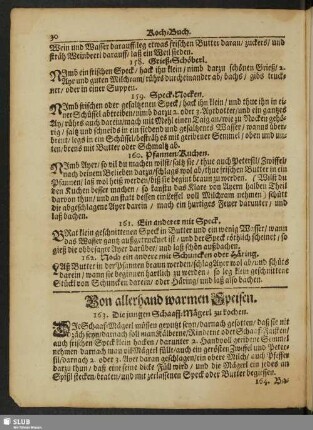 30 Koch-Buch.
Wein und Wasser darauff/leg etwas frischen Butter daran/ zuckers/ und
sträh Weinberl darauff/ laß ein Weil sieden.
158. Grieß-Schöberl.
NImb ein frischen Speck/ hack ihn klein/ nimb darzu schönen Grieß/ 2.
Ayr und guten Milchram/ rührs durcheinander ab/ bachs/ gibs trucke-
ner/ oder in einer Suppen.
159. Speck-Nocken.
NImb frischen oder gesaltzenen Speck/ hack ihn klein/ und thue ihn in ei-
ner Schüssel abtreiben/ nimb darzu 2. oder 3. Ayrdotter/ und ein gantzes
Ay/ rührs auch darein/ mach mit Mehl einen Taig an/ wie zu Nocken gehö-
rig/ saltz und schneids in ein siedend und gesaltzenes Wasser/ wanns über-
brent/ legs in ein Schüssel/ besträhs mit geribener Semmel/ oben und un-
ten/ brens mit Butter oder Schmaltz ab.
160. Pfannen-Kuchen.
NImb Ayer/ so vil du machen wilst/ saltz sie/ thue auch Petersill Zwiffel/
nach deinem Belieben darzu/ schlags wol ab/ thue frischen Butter in ein
Pfannen/ laß wol heiß werden/ biß sie beginnt braun zu werden/ Wilst du
den Kuchen besser machen/ so kanstu das Klare von Ayern halben Theil
darvon thun/ und an statt dessen einthalb voll Milchram nehmen/ schütt
die abgeschlagene Ayer darein/ mach ein hurtiges Feuer darunter/ und
laß bachen.
161. Ein anderer mit Speck.
BRat klein geschnittenen Speck in Butter und ein wenig Wasser/ wann
das Wasser gantz außgetrucknet ist/ und der Speck röschlich scheinet/ so
gieß die abklopffte Ayer darüber/ und laß schön außbachen.
162. Noch ein anderer mit Schuncken oder Häring.
LAß Butter in der Pfannen braun werden/ schlag Ayer wol ab/ und schütts
darein/ wann sie beginnen hartlich zu werden/ so leg klein geschnittene
Stückl von Schuncken darein/ oder Häring/ und laß also bachen.
Von allerhand warmen Speisen.
163. Die jungen Schaaff-Mägerl zu kochen.
auch frischen Speck klein hacken/ darunter 2. Handvoll geriben Semml/
nehmen/ darnach man vil Mägerl füllt/ auch ein gerösten Zwiffel und Peter-
sill/ darnach 2. oder 3. Ayer daran geschlagen/ ein obere Milch/ auch Pfeffer
darzu thun/ daß eine feine dicke Füll wird/ und die Mägerl ein jedes an
Spißl stecken/ braten/ und mit zerlassenen Speck oder Butter begiessen.
SLUB